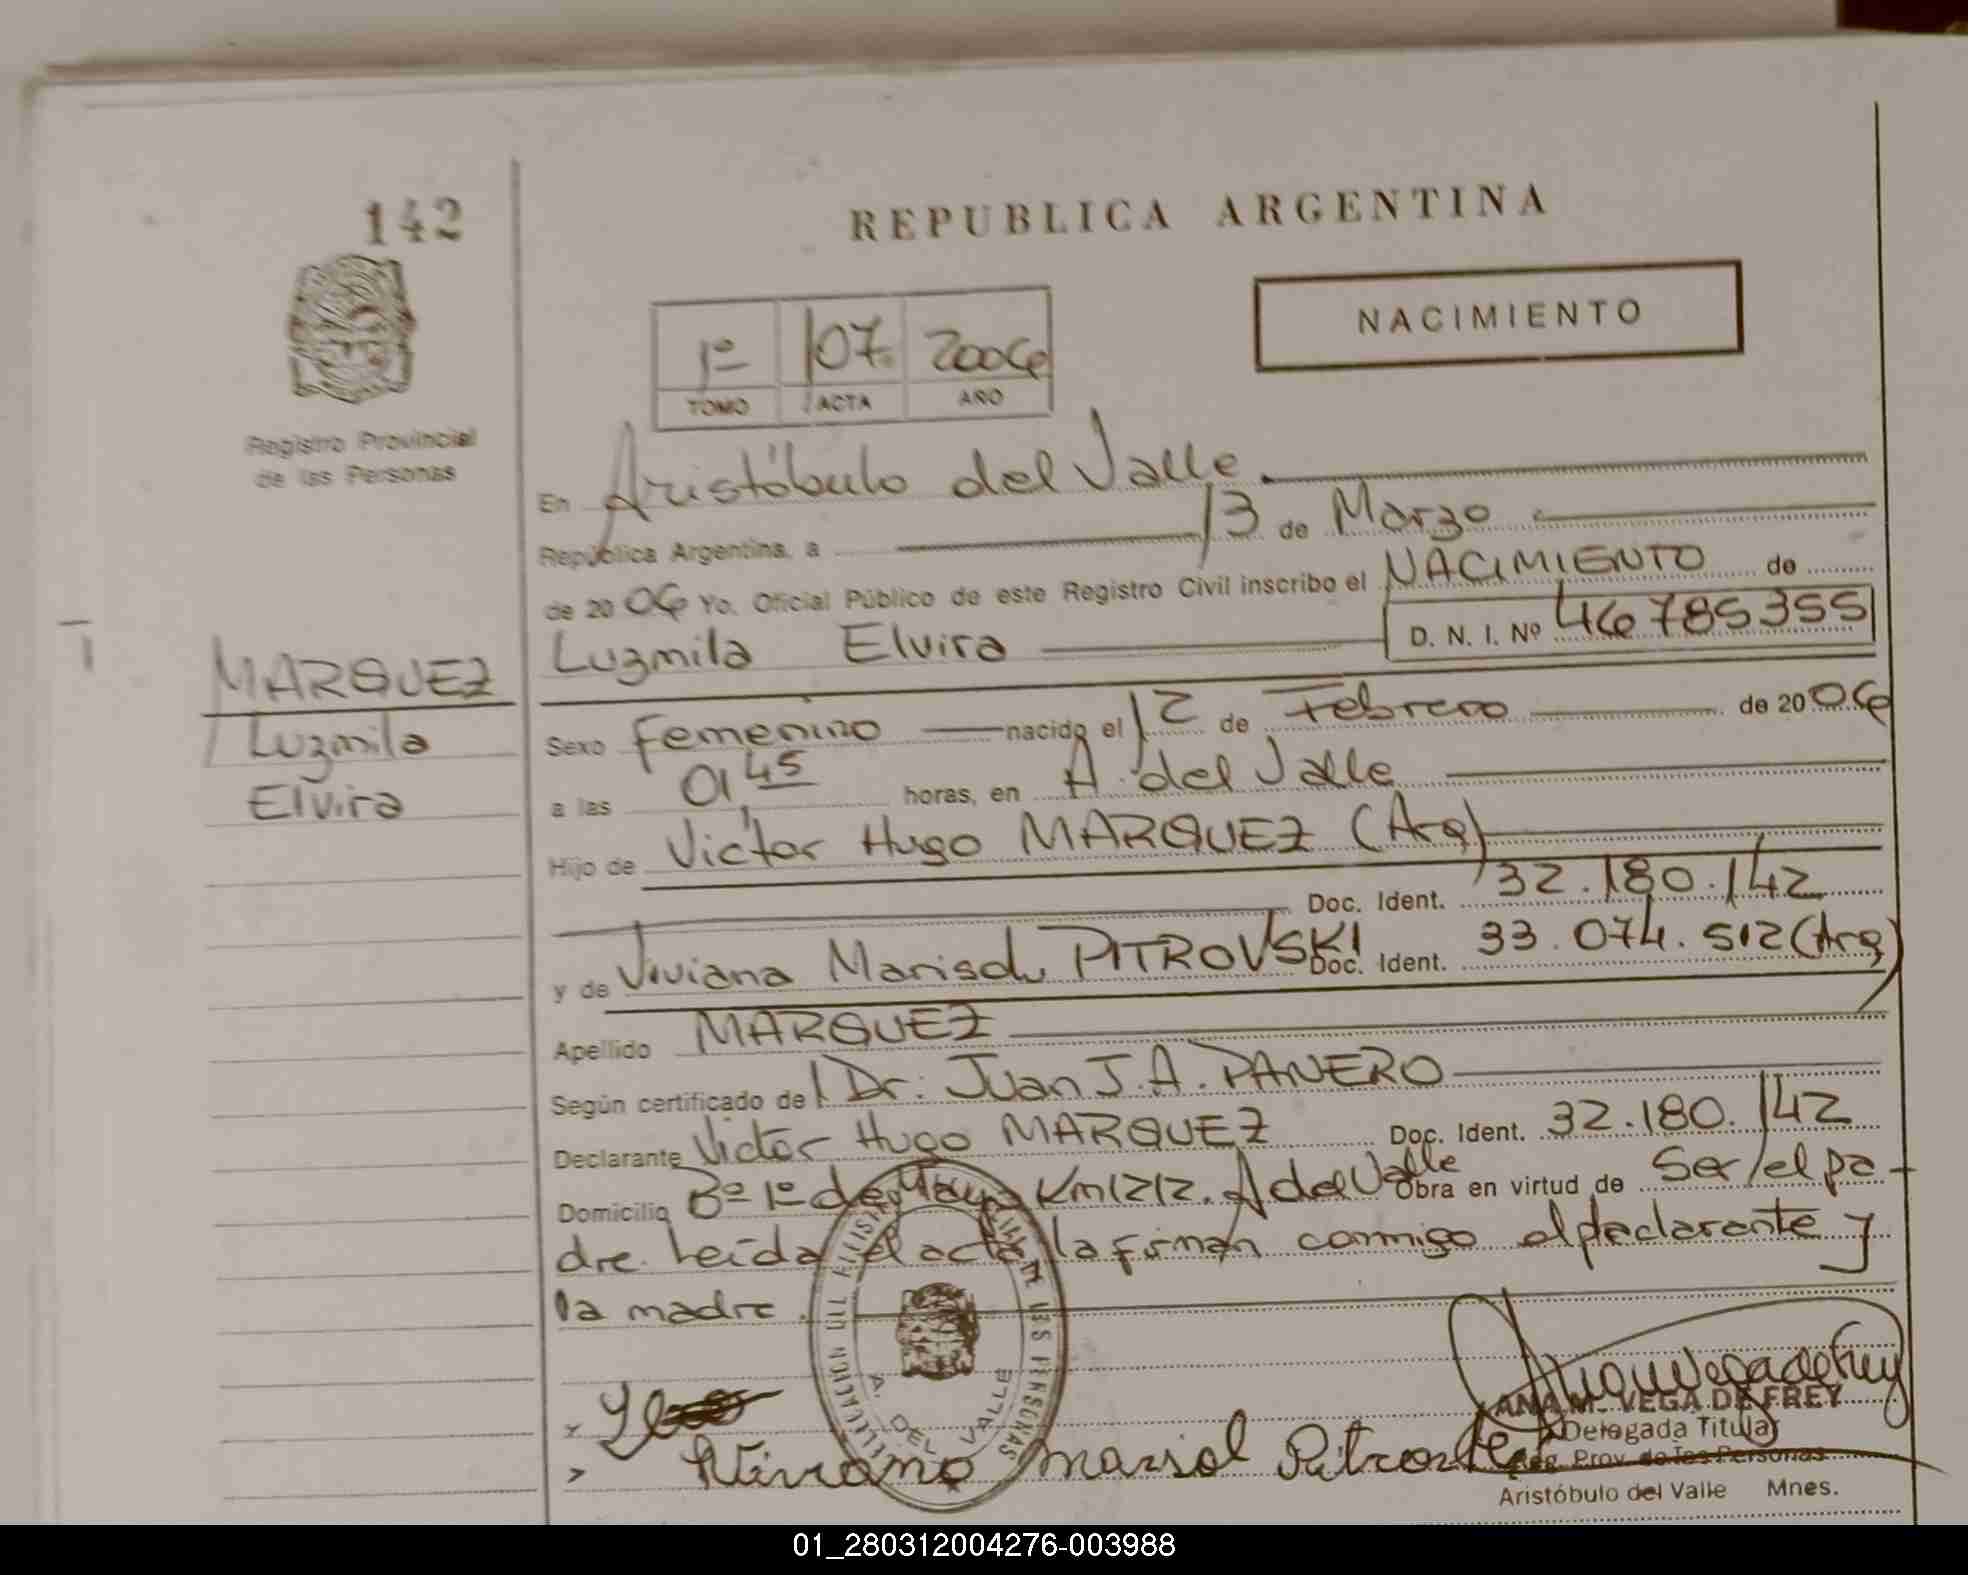 142
REPUBLICA ARGENTINA
NACIMIENTO
1º 107 2006
TOMO ACTA AÑO
Registro Provincial
de las Personas
En Aristóbulo del Valle
República Argentina, a 13 de Marzo
de 2006 Yo, Oficial Público de este Registro Civil inscribo el NACIMIENTO de
D. N. I. Nº 46785355
MARQUEZ
Luzmila
Elvira
Luzmila Elvira
Sexo femenino nacido el 12 de Febrero de 2006
a las 01,45 horas, en A. del Valle
Hijo de Victor Hugo MARQUEZ (Arg)
Doc. Ident. 32.180.142
y de Viviana Marisol PITROVSKI Doc. Ident. 33.074.512 (Arg)
Apellido MARQUEZ
Según certificado de Dr. Juan J. A. PANERO
Declarante Victor Hugo MARQUEZ Doc. Ident. 32.180.142
Domicilio Bº 1º de Mayo Km 1212. A del Valle Obra en virtud de Ser el pa-
dre. Leída el acta la firman conmigo el declarante y
la madre.
A. DEL VALLE
ANA M. VEGA DE FREY
Delegada Titular
Reg. Prov. de las Personas
Aristóbulo del Valle Mnes.
Viviana marisol Pitrovski
01_280312004276-003988